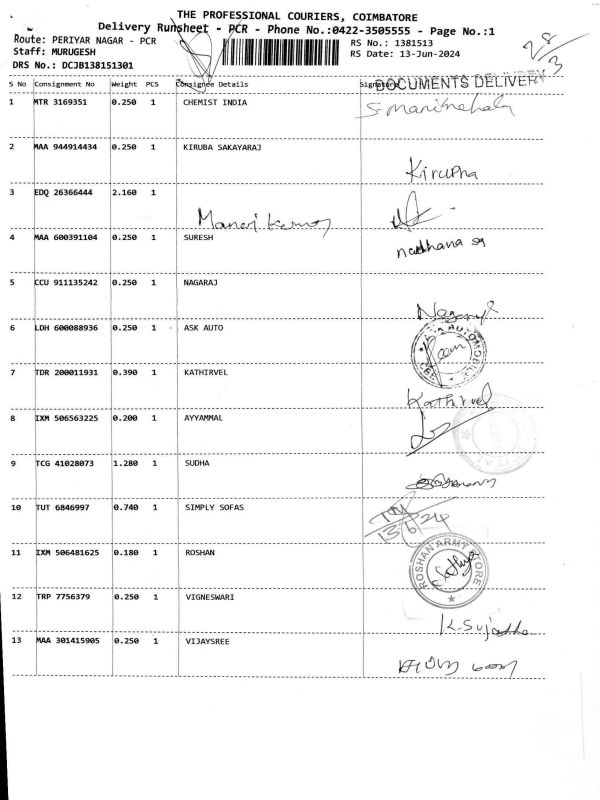 THE PROFESSIONAL COURIERS, COIMBATORE
Delivery Runsheet - PCR - Phone No.:0422-3505555 - Page No.:1
Route: PERIYAR NAGAR - PCR
RS No.: 1381513
28/3
Staff: MURUGESH
RS Date: 13-Jun-2024
DRS No.: DCJB138151301
S No Consignment No Weight PCS Consignee Details DOCUMENTS DELIVERY
1 MTR 3169351 0.250 1 CHEMIST INDIA
2 MAA 944914434 0.250 1 KIRUBA SAKAYARAJ
Kirupha
3 EDQ 26366444 2.160 1
4 MAA 600391104 0.250 1 SURESH
5 CCU 911135242 0.250 1 NAGARAJ
Nagaraj
6 LDH 600088936 0.250 1 ASK AUTO
7 TDR 200011931 0.390 1 KATHIRVEL
Kathirvel
8 IXM 506563225 0.200 1 AYYAMMAL
9 TCG 41028073 1.280 1 SUDHA
10 TUT 6846997 0.740 1 SIMPLY SOFAS
13/6/24
11 IXM 506481625 0.180 1 ROSHAN
ROSHAN ARMY STORE
12 TRP 7756379 0.250 1 VIGNESWARI
K. Sujatha
13 MAA 301415905 0.250 1 VIJAYSREE